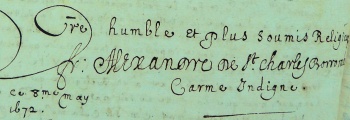 Vre humble et plus soumis Religi
fr: Alexandre De St Charles Borrom
Carme Indigne.
ce 8me may
1672.